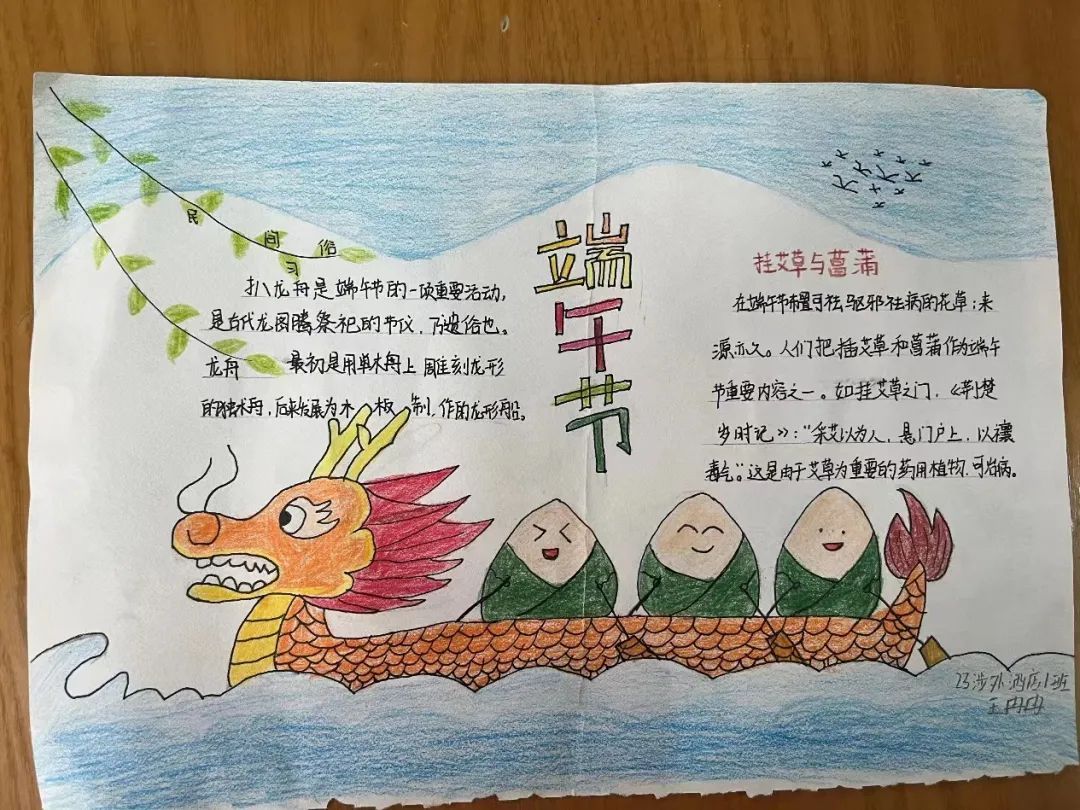 民间习俗
扒龙舟是端午节的一项重要活动，
是古代龙图腾祭祀的节仪，乃遗俗也。
龙舟 最初是用单木舟上雕刻龙形
的独木舟，后来发展为木板制作的龙形船。
端午节
挂艾草与菖蒲
在端午节
驱邪祛病的花草；来
源亦久。人们把插艾草和菖蒲作为端午
节重要内容之一。如挂艾草之门，《荆楚
岁时记》："采艾以为人，悬门户上，以禳
毒气。"这是由于艾草为重要的药用植物，可治病。
23涉外酒店1班
王冉冉